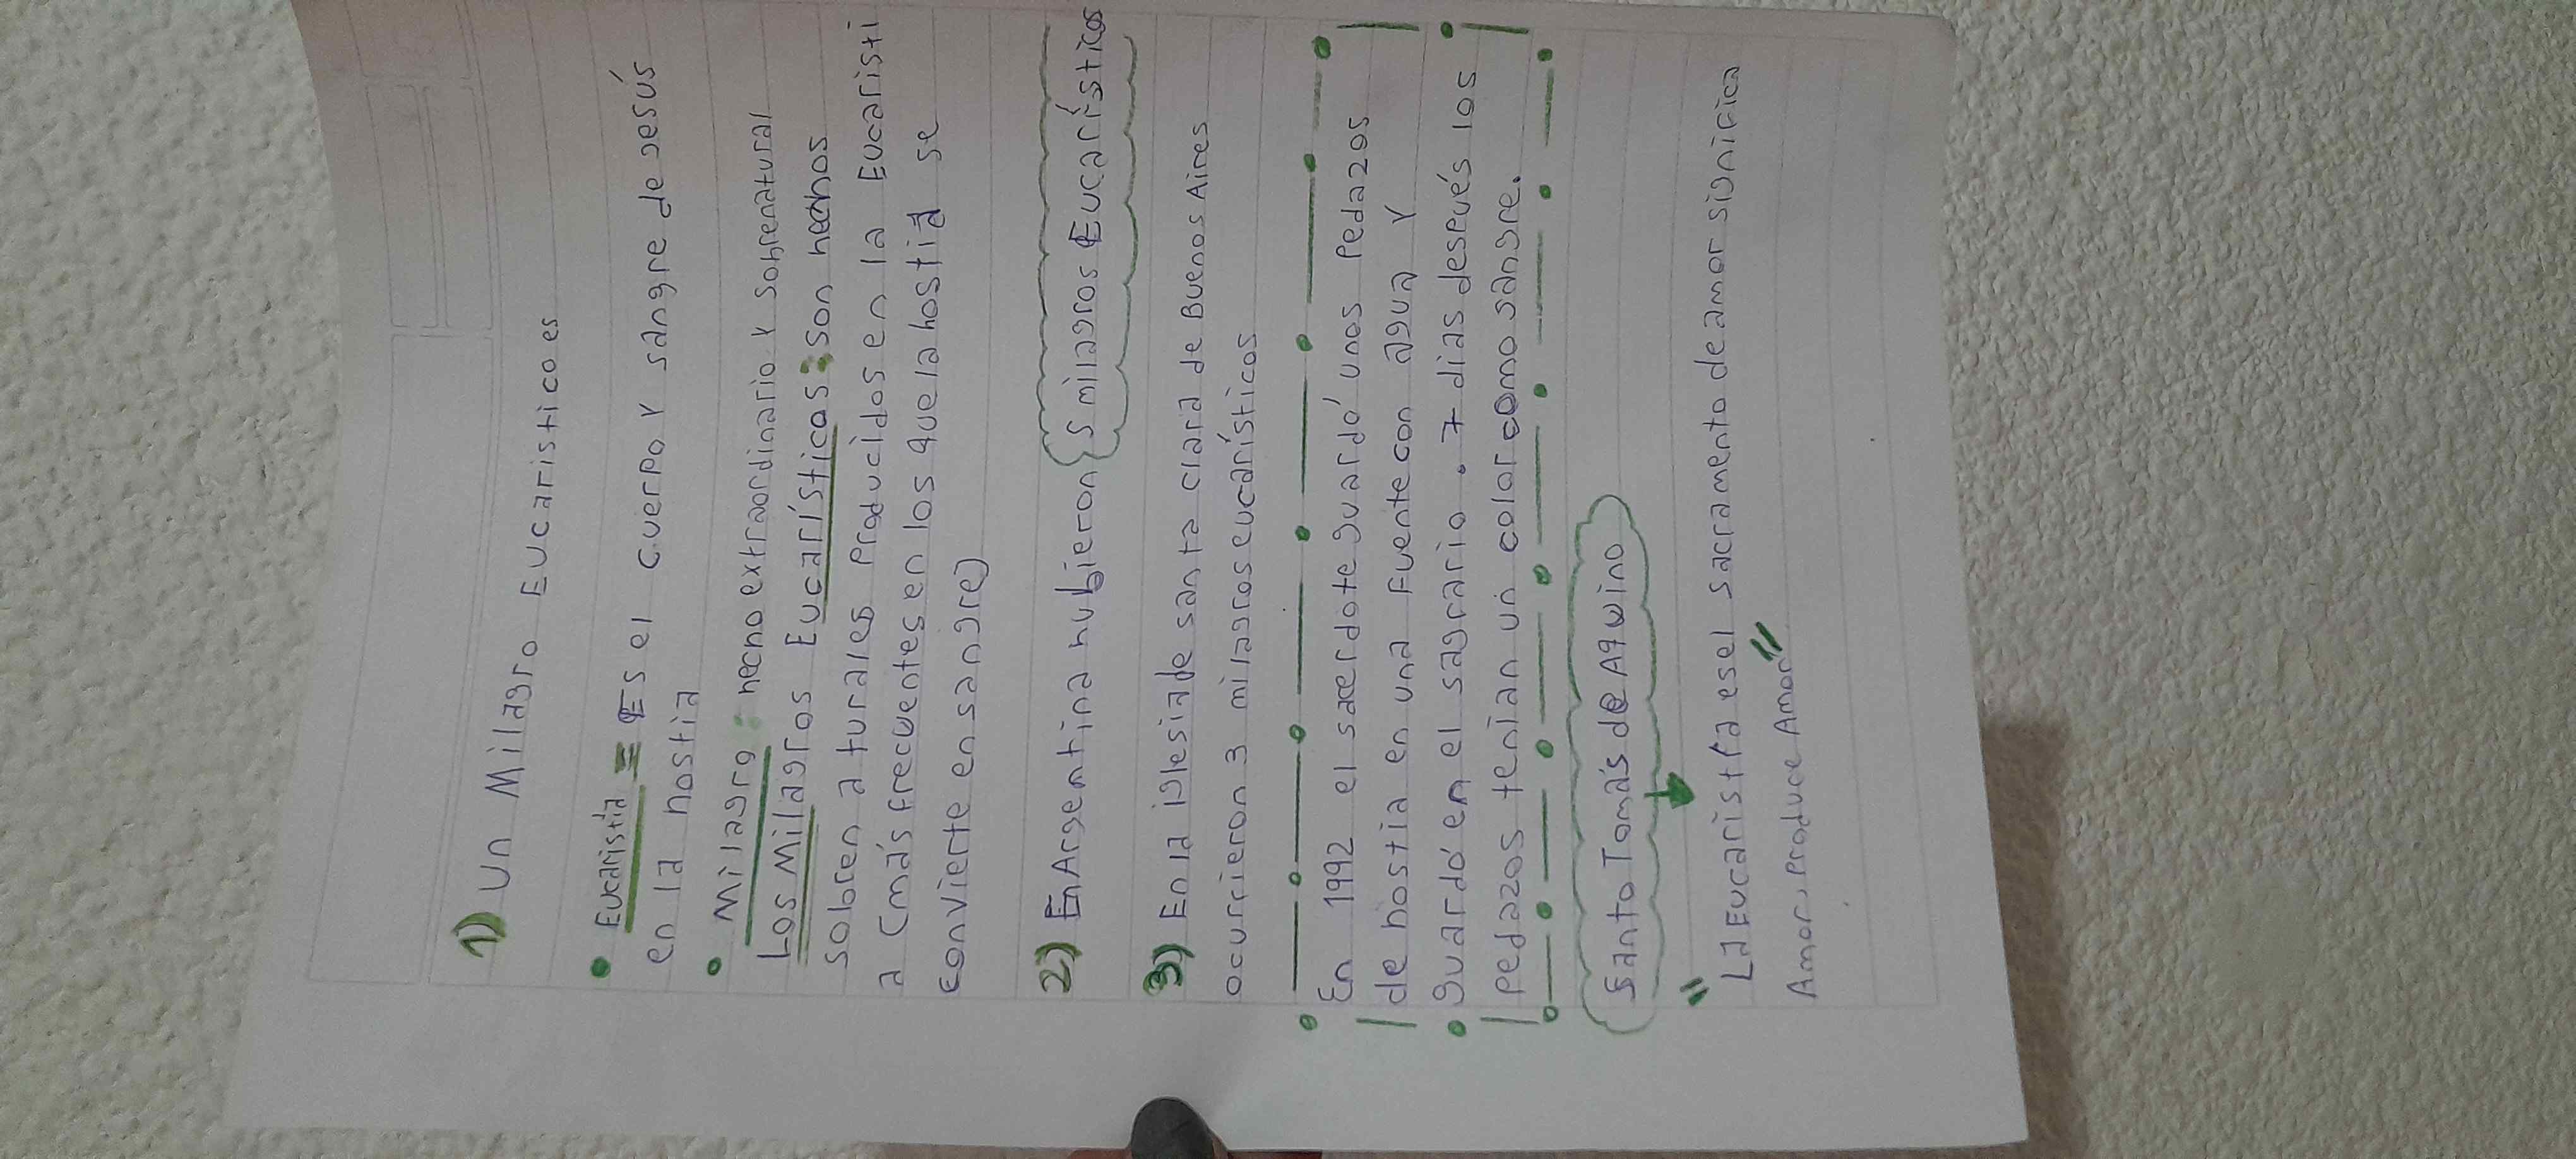 1) Un Milagro Eucaristico es
• Eucaristía = Es el cuerpo y sangre de Jesús
en la hostia
• Milagro: hecho extraordinario y sobrenatural
Los Milagros Eucarísticos: son hechos
sobren aturales producidos en la Eucaristi
a (más frecuentes en los que la hostia se
convierte en sangre)
2) En Argentina hubieron 5 milagros Eucarísticos
3) En la iglesia de santa clara de Buenos Aires
ocurrieron 3 milagros eucarísticos
En 1992 el sacerdote guardó unos pedazos
de hostia en una fuente con agua y
guardó en el sagrario. 7 dias después los
pedazos tenían un color como sangre.
Santo Tomás de Aqwino
"La Eucaristía es el sacramento de amor significa
Amor, produce Amor"